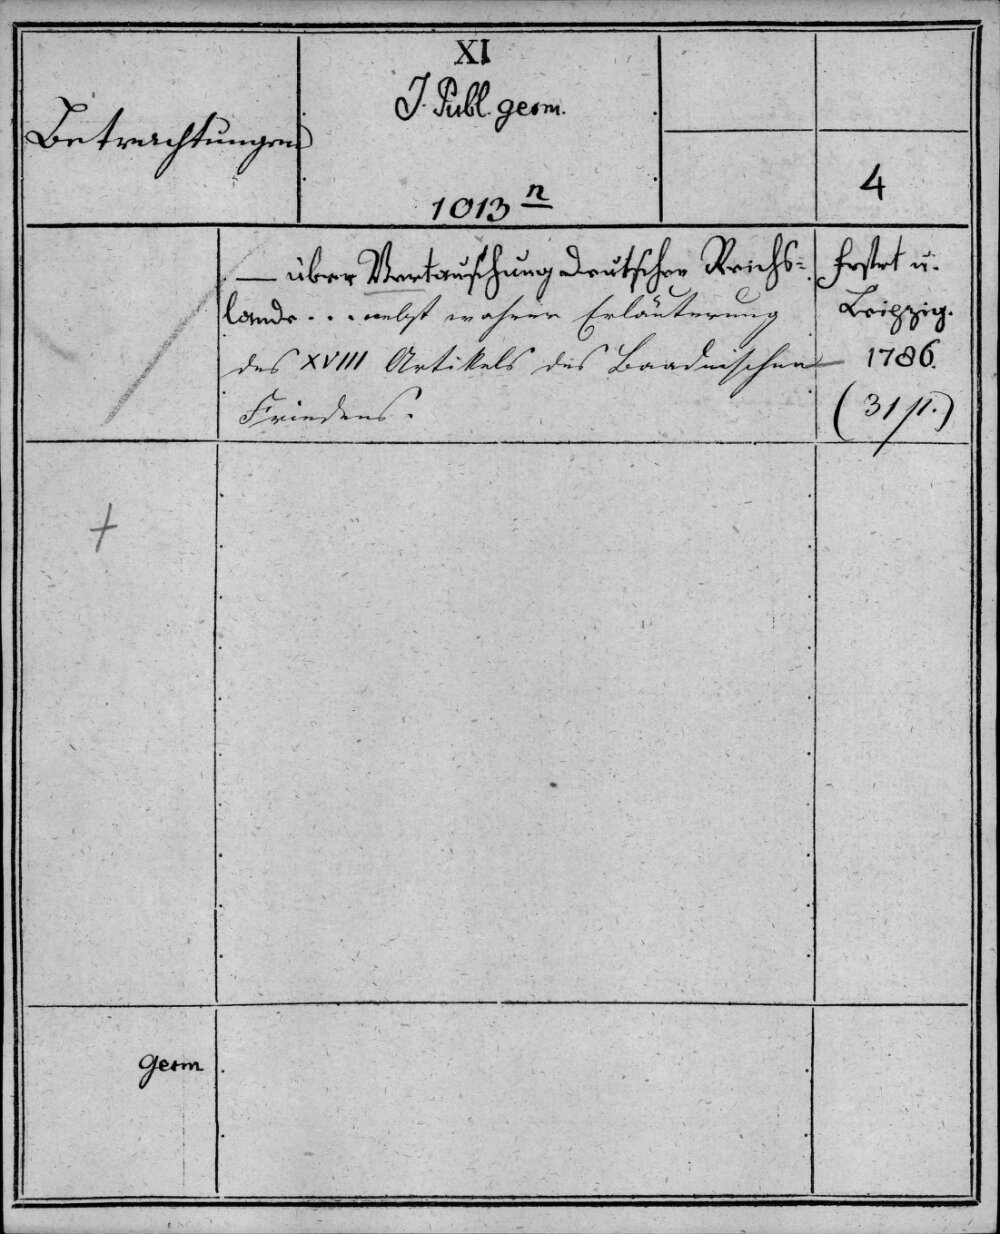 XI
J. Publ. germ.
Betrachtungen
4
1013 n
— über Vertauschung deutscher Reichs-
lande... nebst wahrer Erläuterung
des XVIII Artikels des Baadnischen
Friedens.
Frft u.
Leipzig.
1786.
(31 p.)
germ